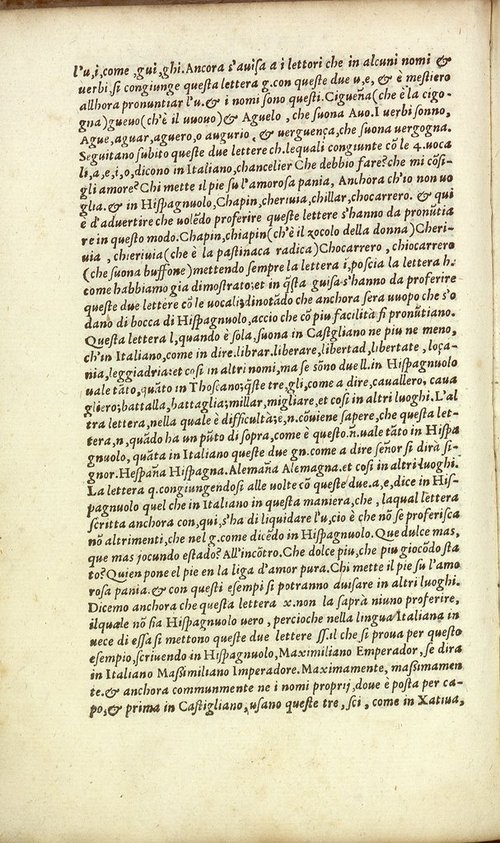 l'u,i,come ,gui,ghi.Ancora s'auisa a i lettori che in alcuni nomi &
uerbi si congiunge questa lettera g.con queste due u,e, & è mestiero
allhora pronuntiar l'u.& i nomi sono questi.Cigueña(che è la cigo-
gna)gueuo(ch'è il uuouo)& Aguelo , che suona Auo.I uerbi sonno,
Ague,aguar,aguero,o augurio , & uerguença,che suona uergogna.
Seguitano subito queste due lettere ch.lequali congiunte cõ le 4.uoca
li,a,e,i,o,dicono in Italiano,chancelier Che debbio fare?che mi cõsi-
gli amore?Chi mette il pie su l'amorosa pania, Anchora ch'io non uo
glia.& in Hispagnuolo,Chapin,cheriuia,chillar,chocarrero. & qui
è d'aduertire che uolẽdo proferire queste lettere s'hanno da pronũtia
re in questo modo.Chapin,chiapin(ch'è il zocolo della donna)Cheri-
uia , chieriuia(che è la pastinaca radica)Chocarrero , chiocarrero
(che suona buffone)mettendo sempre la lettera i,poscia la lettera h.
come habbiamo gia dimostrato;et in q̃sta guisa s'hanno da proferire
queste due lettere cõ le uocali;dinotãdo che anchora sera uuopo che s'o
dano di bocca di Hispagnuolo,accio che cõ piu facilità si pronũtiano.
Questa lettera l,quando è sola,suona in Castgliano ne piu ne meno,
ch'in Italiano,come in dire.librar.liberare,libertad,libertate ,loça-
nia,leggiadria:et cosi in altri nomi,ma se sõno due ll.in Hispagnuolo
uale tãto,quãto in Thoscano;q̃ste tre,gli,come a dire,cauallero. caua
gliero;battalla,battaglia;millar,migliare,et cosi in altri luoghi.L'al
tra lettera,nella quale è difficultà;e,n.cõuiene sapere,che questa let-
tera,n,quãdo ha un pũto di sopra,come è questo.ñ.uale tãto in Hispa
gnuolo, quãta in Italiano queste due gn.come a dire señor si dirà si-
gnor.Hespaña Hispagna.Alemaña Alemagna.et cosi in altri luoghi.
La lettera q.congiungendosi alle uolte cõ queste due.a,e,dice in His-
pagnuolo quel che in Italiano in questa maniera,che , laqual lettera
scritta anchora con,qui,s'ha di liquidare l'u,cio è che nõ se proferisca
nõ altrimenti,che nel g.come dicẽdo in Hispagnuolo.Que dulce mas,
que mas jocundo estado? All'incõtro.Che dolce piu,che piu giocõdo sta
to?Quien pone el pie en la liga d'amor pura.Chi mette il pie su l'amo
rosa pania.& con questi esempi si potranno auisare in altri luoghi.
Dicemo anchora che questa lettera x.non la saprà niuno proferire,
ilquale nõ sia Hispagnuolo uero , percioche nella lingua Italiana in
uece di essa si mettono queste due lettere ss.il che si proua per questo
esempio,scriuendo in Hispagnuolo,Maximiliano Emperador,se dira
in Italiano Massimiliano Imperadore.Maximamente, massimamen
te.& anchora communmente ne i nomi proprij,doue è posta per ca-
po,& prima in Castigliano,usano queste tre,sci, come in Xatiua,